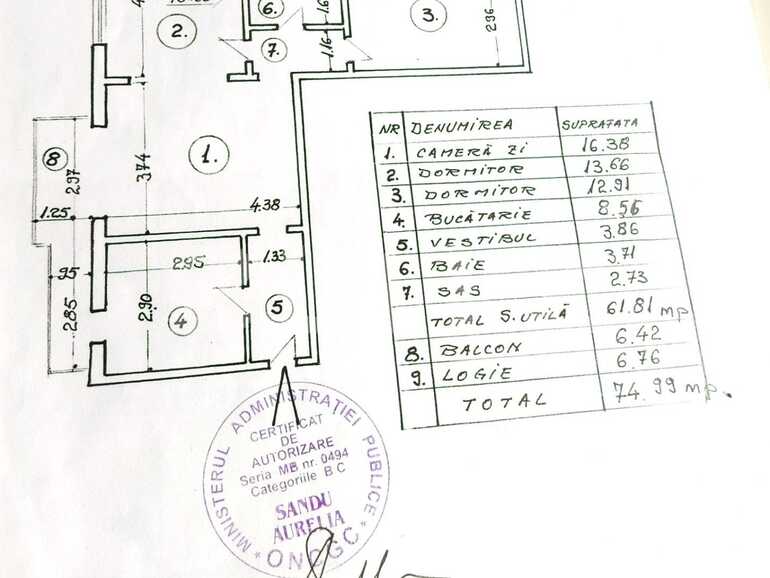 6.
1.6
2.
7.
1.16
3.
2.96
1.
3.74
8
2.97
1.25
4.38
.95
2.95
1.33
2.85
2.90
4
5
NR DENUMIREA SUPRAFATA
1. CAMERĂ ZI 16.38
2. DORMITOR 13.66
3. DORMITOR 12.91
4. BUCĂTARIE 8.56
5. VESTIBUL 3.86
6. BAIE 3.71
7. SAS 2.73
TOTAL S.UTILĂ 61.81 mp
8. BALCON 6.42
9. LOGIE 6.76
TOTAL 74.99 mp.
* MINISTERUL ADMINISTRAȚIEI PUBLICE *
CERTIFICAT
DE
AUTORIZARE
Seria MB nr. 0494
Categoriile B C
SANDU
AURELIA
ONCGC